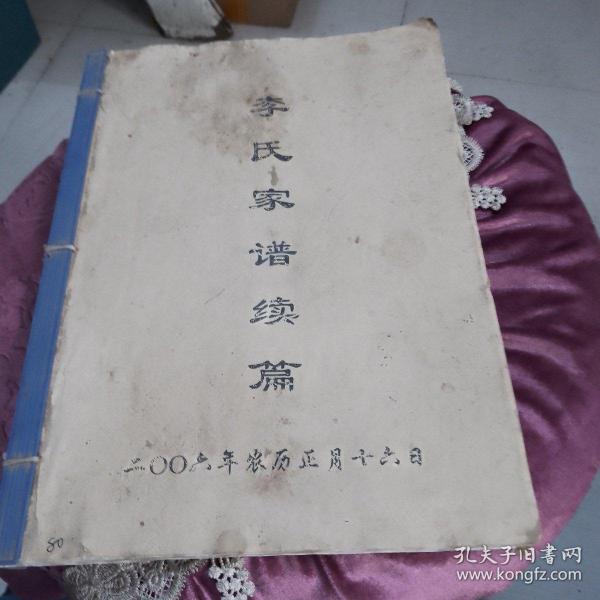 李氏家谱续篇
二〇〇六年农历正月十六日
80
孔夫子旧書网
www.kongfz.com